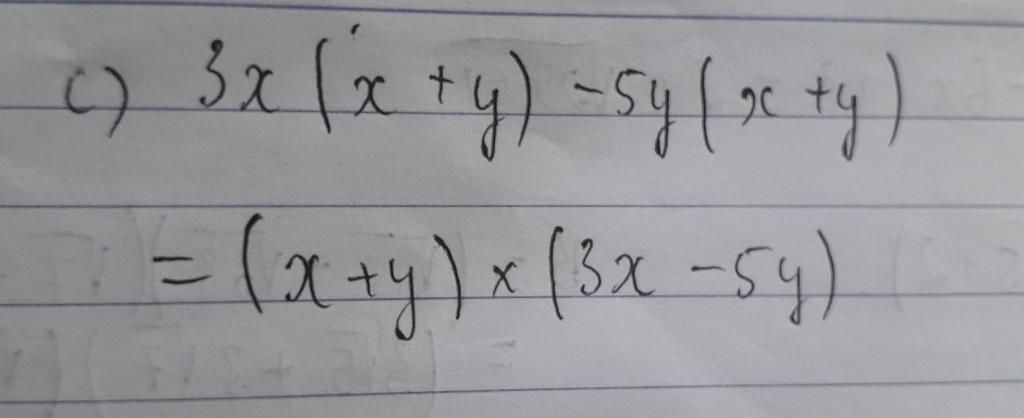 c) 3x (x + y) - 5y (x + y)
= (x + y) × (3x - 5y)